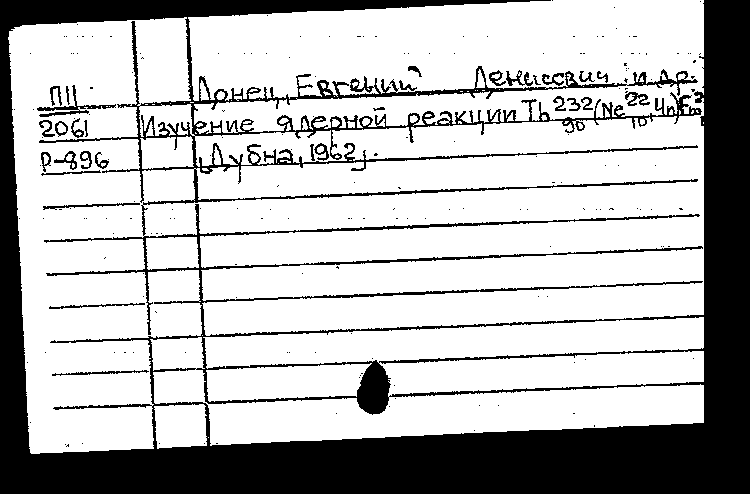 П11 Донец, Евгений Денисович и др.
2061 Изучение ядерной реакции Th 232 90 (Ne 22 10, 4n) Fm
Р-896 [Дубна, 1962].